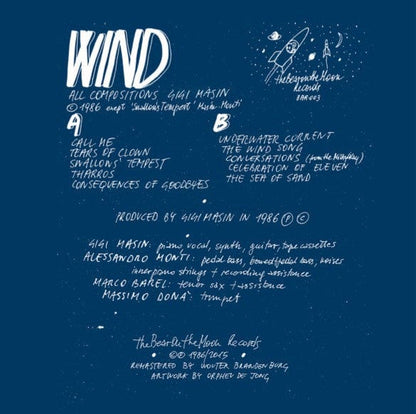 WIND
ALL COMPOSITIONS GIGI MASIN
© 1986 except 'Swallow's Tempest' Masin-Monti
theBearOnTheMoon
Records
BAR003
A
CALL ME
TEARS OF CLOWN
SWALLOWS' TEMPEST
THARROS
CONSEQUENCES OF GOODBYES
B
UNDERWATER CURRENT
THE WIND SONG
CONVERSATIONS (from the Milky Way)
CELEBRATION OF ELEVEN
THE SEA OF SAND
PRODUCED BY GIGI MASIN IN 1986 Ⓟ Ⓒ
GIGI MASIN: piano, vocal, synth, guitar, tape cassettes
ALESSANDRO MONTI: pedal bass, bowed pedal bass, noises
inner piano strings + recording assistance
MARCO BAREL: tenor sax + assistance
MASSIMO DONÀ: trumpet
theBearOnTheMoon Records
©Ⓟ 1986/2015
REMASTERED BY WOUTER BRANDENBURG
ARTWORK BY ORPHEU DE JONG